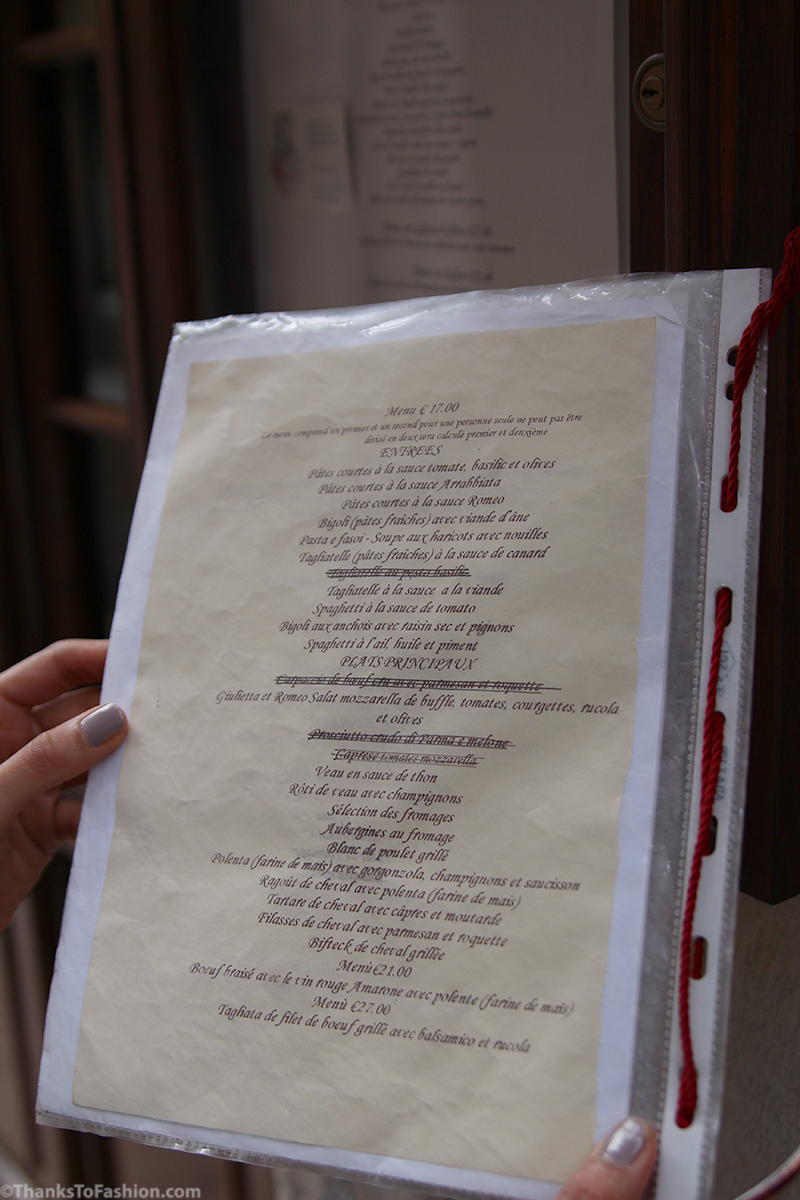 Menu € 17.00
Le menu comprend un premier et un second pour une personne seule ne peut pas être
divisé en deux sera calculé premier et deuxième
ENTREES
Pâtes courtes à la sauce tomate, basilic et olives
Pâtes courtes à la sauce Arrabbiata
Pâtes courtes à la sauce Romeo
Bigoli (pâtes fraîches) avec viande d'âne
Pasta e fasoi - Soupe aux haricots avec nouilles
Tagliatelle (pâtes fraîches) à la sauce de canard
Tagliatelle au pesto basilic
Tagliatelle à la sauce a la viande
Spaghetti à la sauce de tomato
Bigoli aux anchois avec raisin sec et pignons
Spaghetti à l'ail, huile et piment
PLATS PRINCIPAUX
Carpaccio de bœuf cru avec parmesan et roquette
Giulietta et Romeo Salat mozzarella de buffle, tomates, courgettes, rucola
et olives
Prosciutto crudo di Parma e melone
Caprese tomates mozzarella
Veau en sauce de thon
Rôti de veau avec champignons
Sélection des fromages
Aubergines au fromage
Blanc de poulet grillé
Polenta (farine de maïs) avec gorgonzola, champignons et saucisson
Ragoût de cheval avec polenta (farine de maïs)
Tartare de cheval avec câpres et moutarde
Filasses de cheval avec parmesan et roquette
Bifteck de cheval grillée
Menù€21.00
Boeuf braisé avec le vin rouge Amarone avec polente (farine de maïs)
Menù €27.00
Tagliata de filet de boeuf grillé avec balsamico et rucola
©ThanksToFashion.com